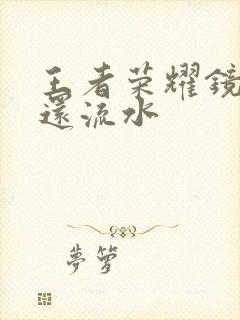 王者荣耀镜
还流水
夢箩